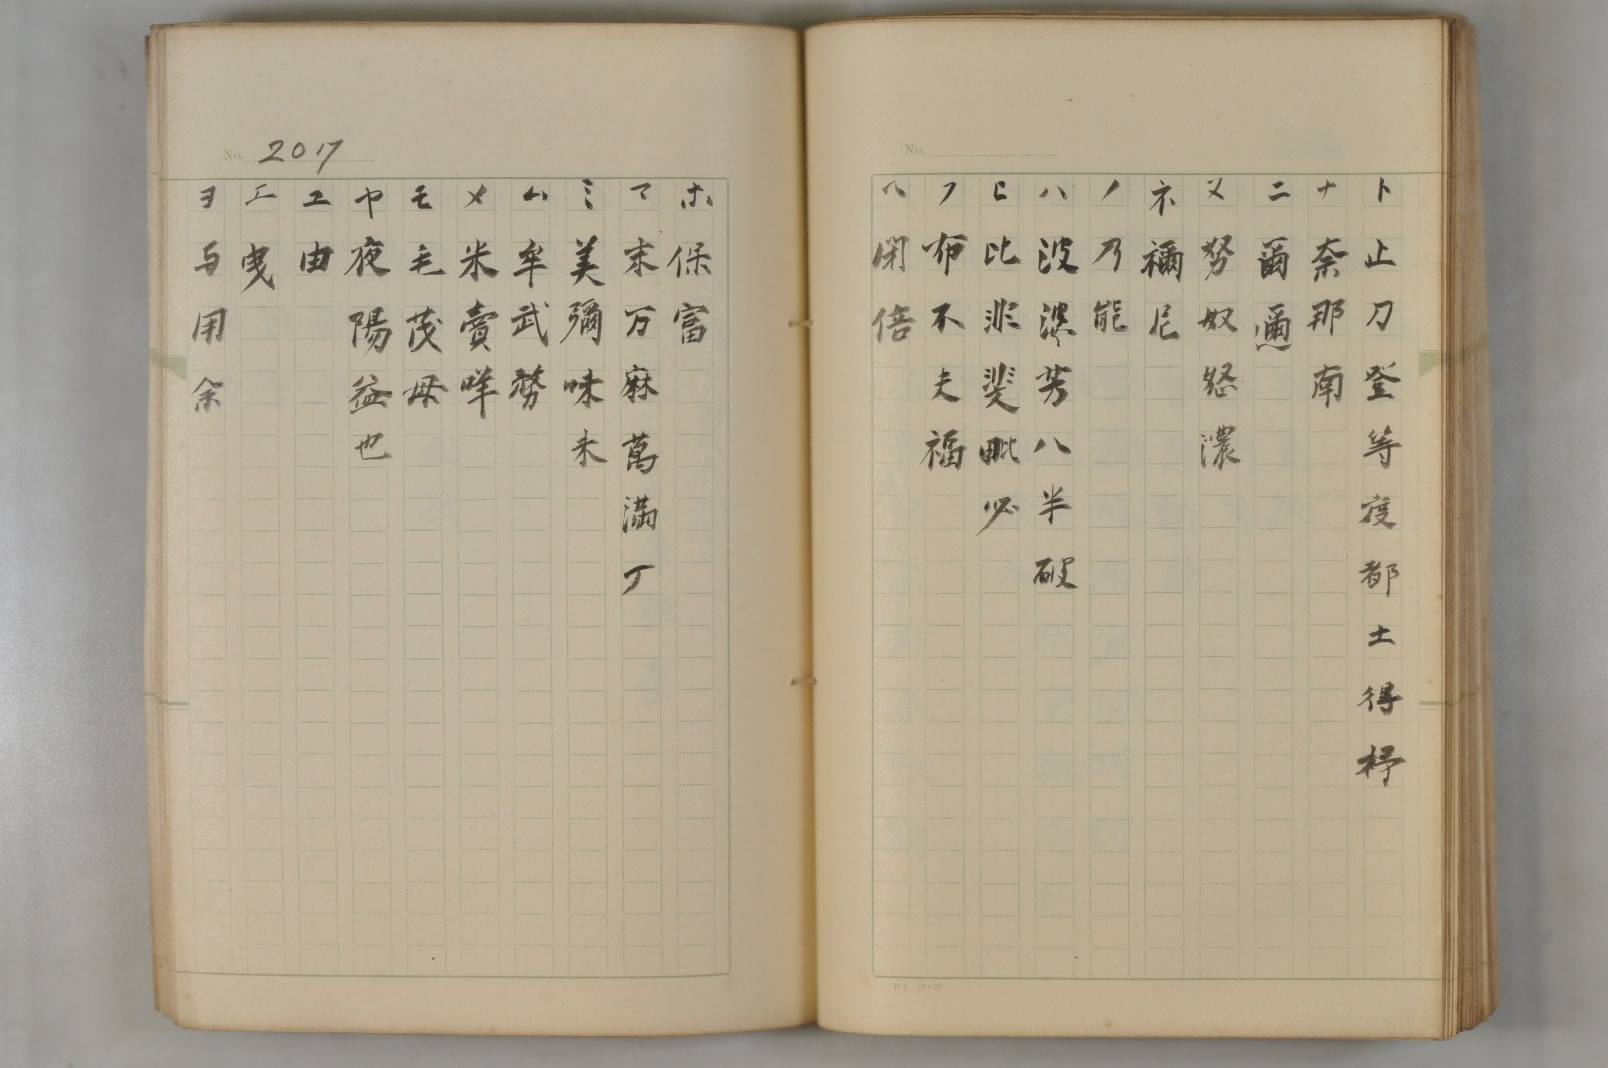 No.
ト 止 刀 登 等 度 都 土 得 杼
ナ 奈 那 南
ニ 爾 邇
ヌ 努 奴 怒 濃
ネ 禰 尼
ノ 乃 能
ハ 波 芳 八 半 破
ヒ 比 非 斐 毗 必
フ 布 不 夫 福
ヘ 閉 倍
No. 2017
ホ 保 富
マ 末 万 麻 萬 満 丁
ミ 美 彌 味 未
ム 牟 武 勞
メ 米 賣 咩
モ 毛 茂 母
ヤ 夜 陽 益 也
ユ 由
エ 曳
ヨ 与 用 余